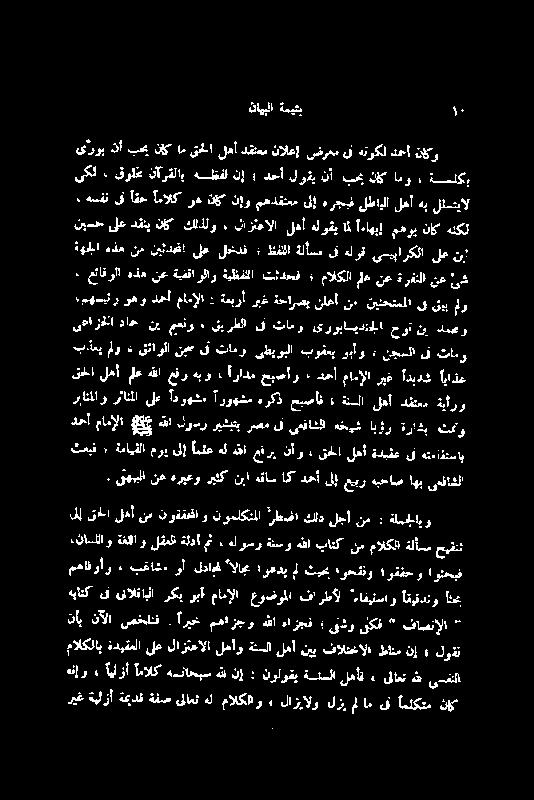 ١٠ يتيمة البيان
وكان أحمد لكونه فى معرض إعلان معتقد أهل الحق ما كان يحب أن يورّى
بكلمـــة ، وما كان يحب أن يقول أحد : إن لفظـــه بالقرآن مخلوق ، لكى
لايتسلل به أهل الباطل فيجره إلى معتقدهم وإن كان هو كلاماً حقاً فى نفسه ،
لكنه كان يوهم إيهاماً لما يقوله أهل الاعتزال ، ولذلك كان ينقد على حسين
ابن على الكرابيسى قوله فى مسألة اللفظ ؛ فدخل على المحدثين من هذه الجهة
شئ عن النفرة عن علم الكلام ؛ فحدثت اللفظية والواقفية عن هذه الوقائع ،
ولم يبق فى الممتحنين من أعلن بصراحة غير أربعة : الإمام أحمد وهو رئيسهم ،
ومحمد بن نوح الجنديسابورى ومات فى الطريق ، ونعيم بن حماد الخزاعى
ومات فى السجن ، وأبو يعقوب البويطى ومات فى سجن الواثق ، ولم يعذب
عذاباً شديداً غير الإمام أحمد ، وأصبح مداراً ، وبه رفع الله علم أهل الحق
ورأية معتقد أهل السنة ، فأصبح ذكره مشهوراً مشهوداً على المنائر والمنابر
وتمت بشارة رؤيا شيخه الشافعى فى مصر بتبشير رسول الله ﷺ الإمام أحمد
باستقامته فى عقيدة أهل الحق ، وأن يرفع الله له علماً إلى يوم القيامة ؛ فبعث
الشافعى بها صاحبه ربيع إلى أحمد كما ساقه ابن كثير وغيره عن البيهقى .
وبالجملة : من أجل ذلك اضطرّ المتكلمون والمحققون من أهل الحق إلى
تنقيح مسألة الكلام من كتاب الله وسنة رسوله ، ثم أدلة العقل واللغة واللسان،
فبحثوا وحققوا ونقحوا بحيث لم يدعوا مجالاً لمجادل أو مشاغب ، وأوفاهم
بحثاً وتدقيقاً واستيفاءً لأطراف الموضوع الإمام أبو بكر الباقلانى فى كتابه
" الإنصاف " فكفى وشفى ؛ فجزاه الله وجزاهم خيراً . فنلخص الآن بأن
نقول ؛ إن مناط الاختلاف بين أهل السنة وأهل الاعتزال على العقيدة بالكلام
النفسى لله تعالى ، فأهل السنـــة يقولون : إن لله سبحانـــه كلاماً أزلياً ، وإنه
كان متكلماً فى ما لم يزل ولايزال ، والكلام له تعالى صفة قديمة أزلية غير